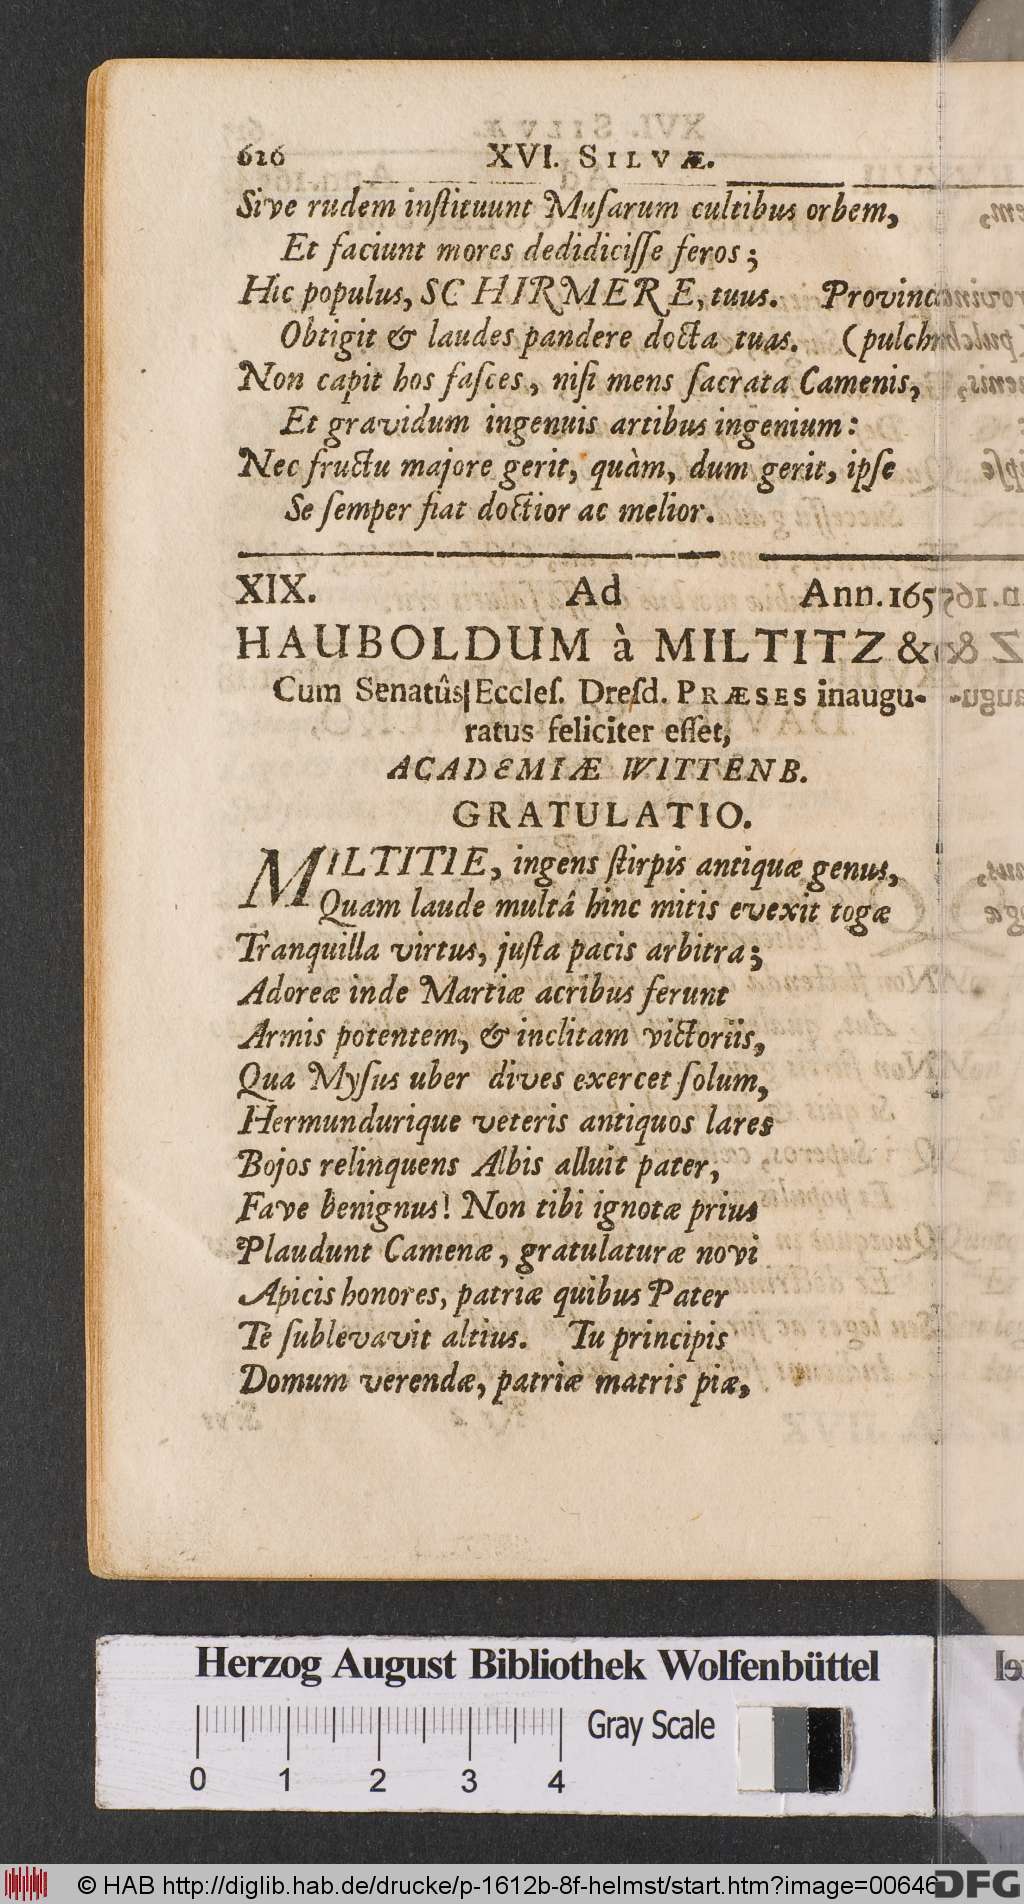 616 XVI. SILVÆ.
Sive rudem inſtituunt Muſarum cultibus orbem,
Et faciunt mores dedidiciſſe feros;
Hic populus, SCHIRMERE, tuus. Provinc
Obtigit & laudes pandere docta tuas. (pulch
Non capit hos faſces, niſi mens ſacrata Camenis,
Et gravidum ingenuis artibus ingenium:
Nec fructu majore gerit, quàm, dum gerit, ipſe
Se ſemper fiat doctior ac melior.
XIX. Ad Ann. 165
HAUBOLDUM à MILTITZ &
Cum Senatûs Eccleſ. Dreſd. PRÆSES inaugu-
ratus feliciter eſſet,
ACADEMIÆ WITTENB.
GRATULATIO.
MILTITIE, ingens ſtirpis antiquæ genus,
Quam laude multâ hinc mitis evexit togæ
Tranquilla virtus, juſta pacis arbitra;
Adoreæ inde Martiæ acribus ferunt
Armis potentem, & inclitam victoriis,
Qua Myſus uber dives exercet ſolum,
Hermundurique veteris antiquos lares
Bojos relinquens Albis alluit pater,
Fave benignus! Non tibi ignotæ prius
Plaudunt Camenæ, gratulaturæ novi
Apicis honores, patriæ quibus Pater
Te ſublevavit altius. Tu principis
Domum verendæ, patriæ matris piæ,
Herzog August Bibliothek Wolfenbüttel
Gray Scale
0 1 2 3 4
© HAB http://diglib.hab.de/drucke/p-1612b-8f-helmst/start.htm?image=00646
DFG